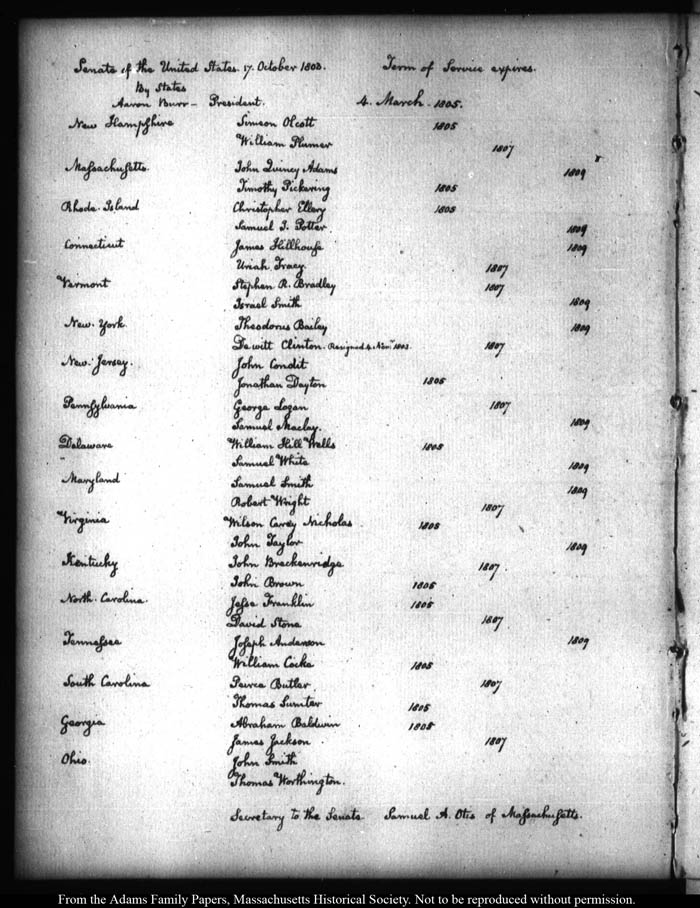 Senate of the United States. 17. October 1803. Term of Service expires.
By States
Aaron Burr — President. 4. March. 1805.
New Hampshire Simeon Olcott 1805
William Plumer 1807
Massachusetts. John Quincy Adams 1809
Timothy Pickering 1805
Rhode. Island Christopher Ellery 1805
Samuel J. Potter 1809
Connecticut James Hillhouse 1809
Uriah Tracy 1807
Vermont Stephen R. Bradley 1807
Israel Smith 1809
New. York. Theodorus Bailey 1809
De witt Clinton. Resigned 4. Novr 1803. 1807
New. Jersey. John Condit
Jonathan Dayton 1805
Pennsylvania George Logan 1807
Samuel Maclay. 1809
Delaware William Hill Wells 1805
Samuel White 1809
Maryland Samuel Smith 1809
Robert Wright 1807
Virginia Wilson Carey Nicholas 1805
John Taylor 1809
Kentucky John Breckenridge 1807
John Brown 1805
North. Carolina. Jesse Franklin 1805
David Stone 1807
Tennessee Joseph Anderson 1809
William Cocke 1805
South Carolina Peirce Butler 1807
Thomas Sumter 1805
Georgia Abraham Baldwin 1805
James Jackson 1807
Ohio John Smith
Thomas Worthington.
Secretary to the Senate Samuel A. Otis of Massachusetts.
From the Adams Family Papers, Massachusetts Historical Society. Not to be reproduced without permission.